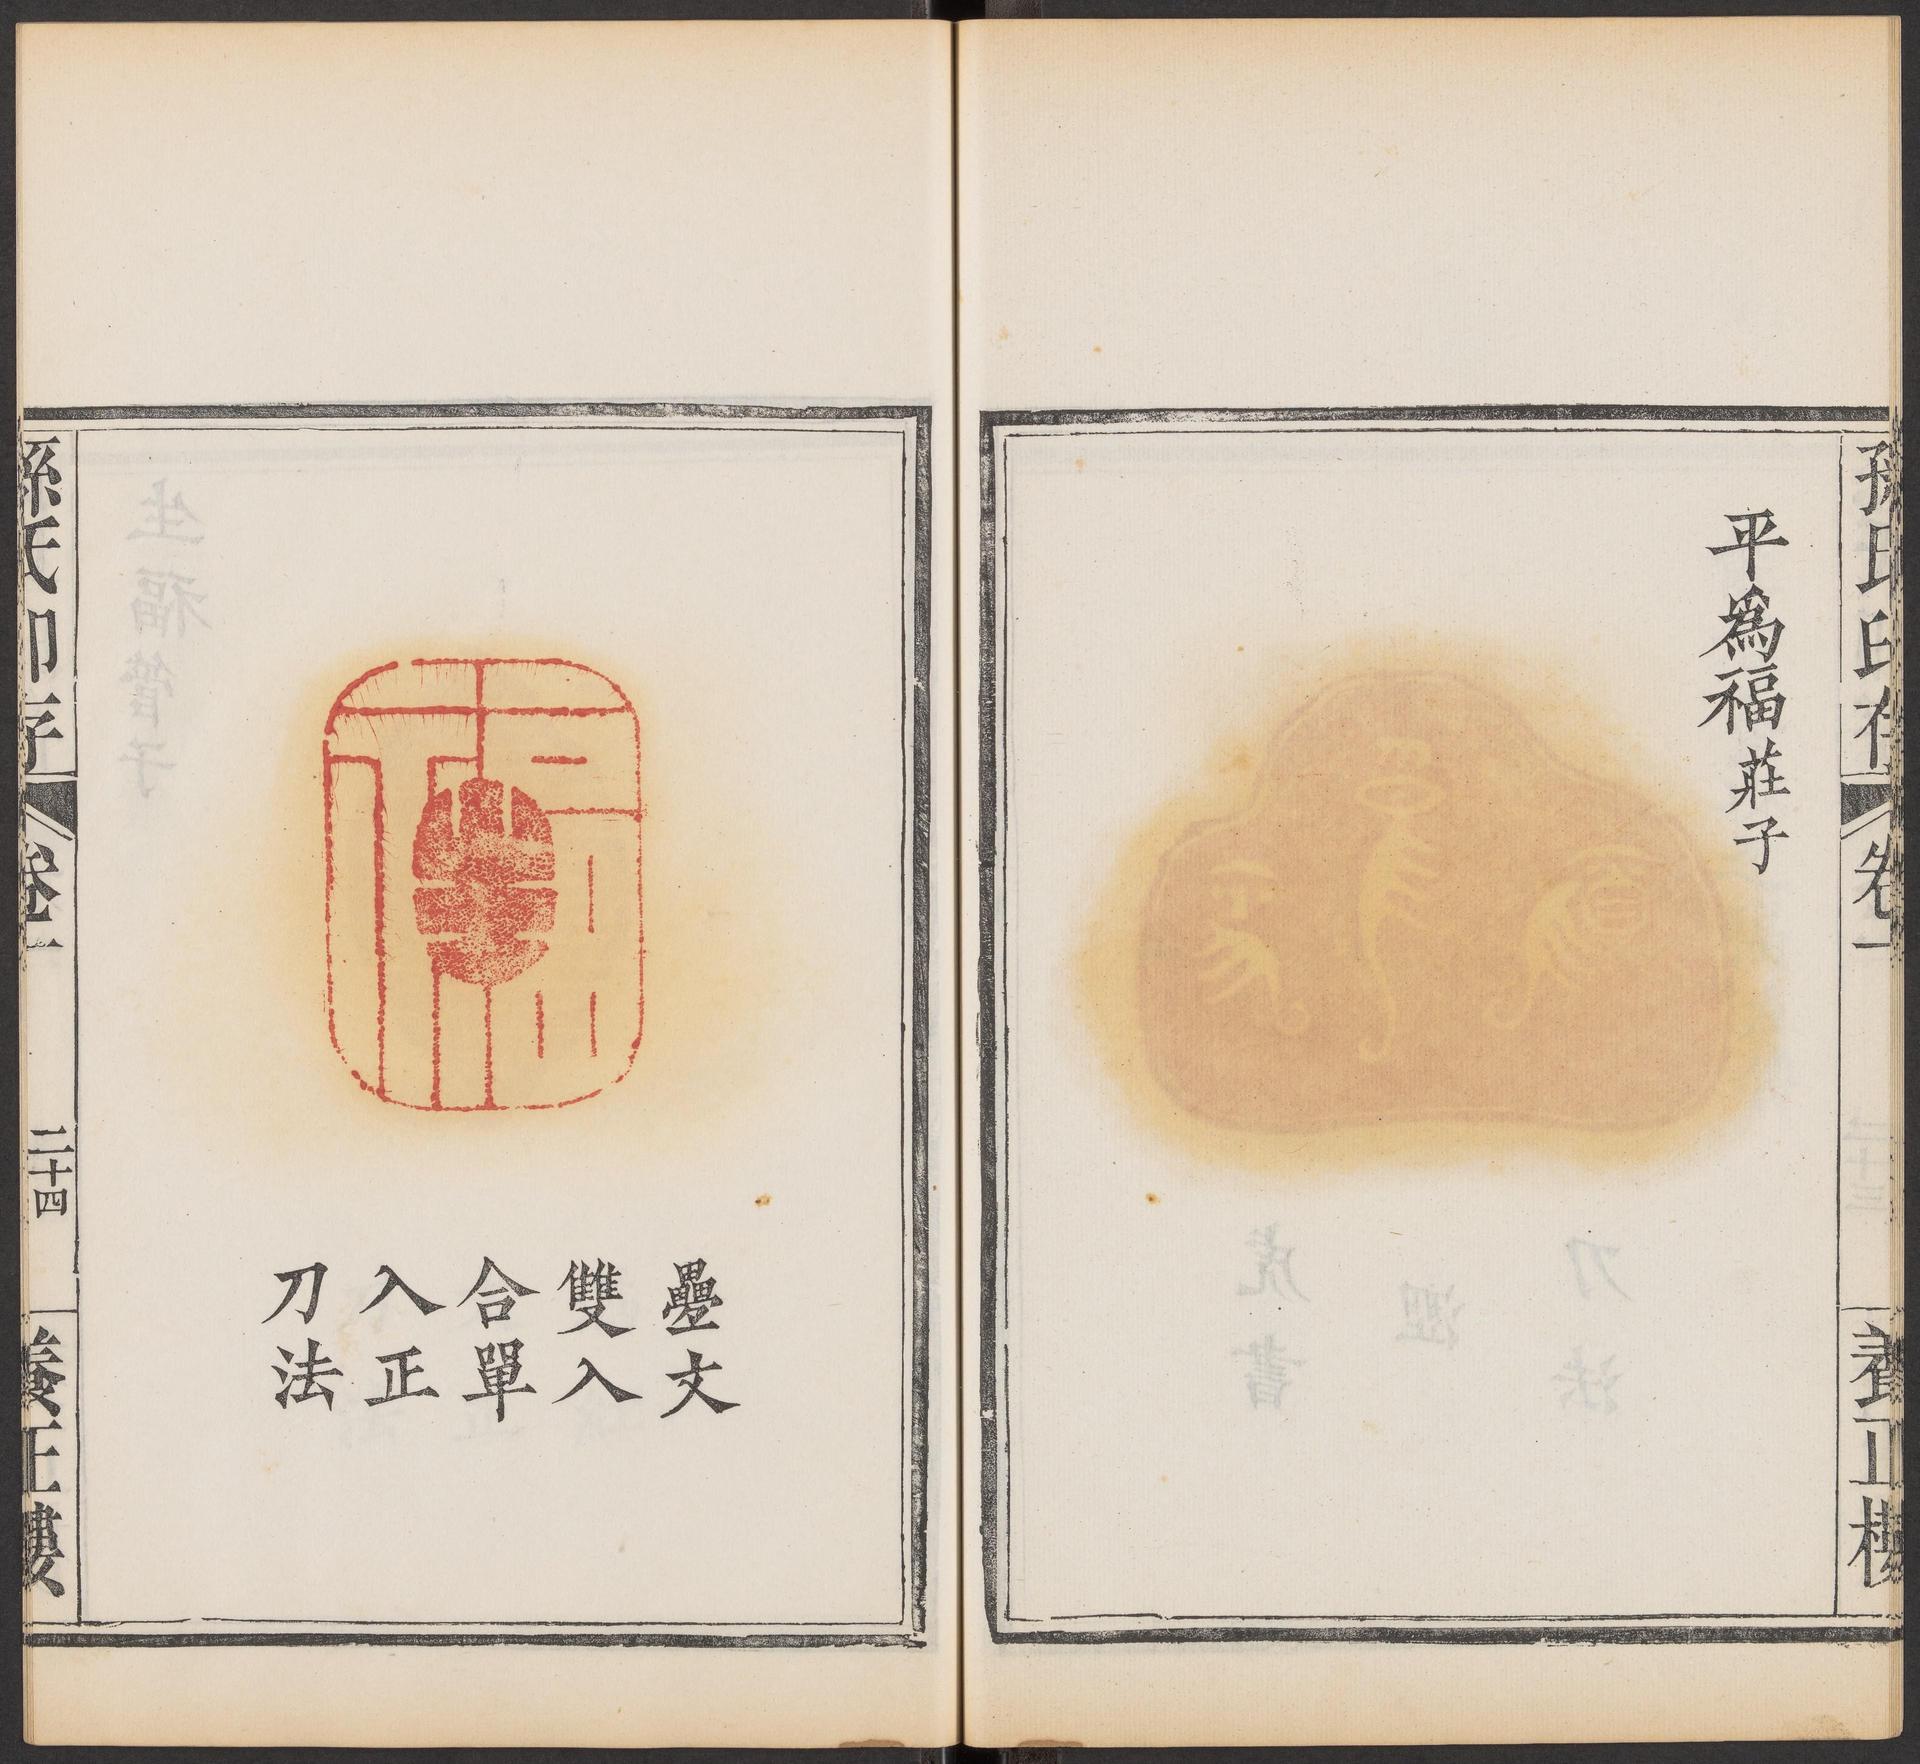 孫氏印存
卷一
養正樓
平為福莊子
福
疊文
雙入
合單
入正
刀法
孫氏印存
卷一
二十四
養正樓